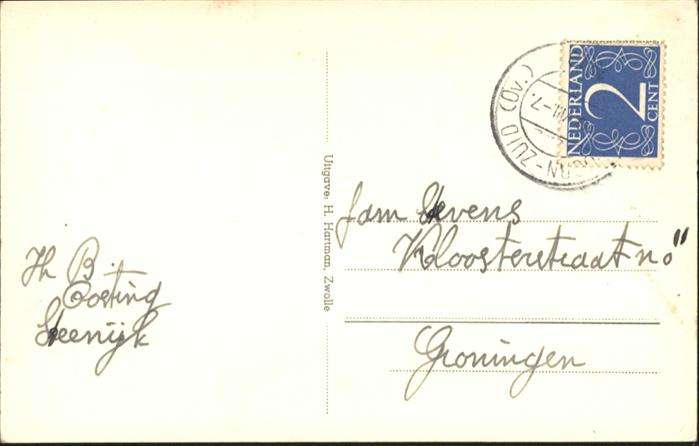 NEDERLAND
2
CENT
-ZUID (Ov.)
Uitgave: H. Hartman, Zwolle
fam Stevens
Kloosterstraat no 11
Groningen
Jh B.
Oosting
Steenijk